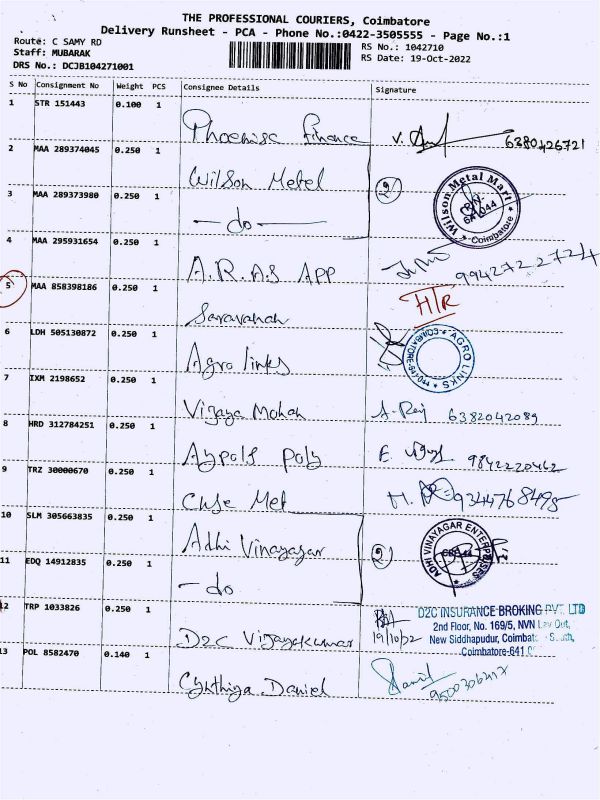 THE PROFESSIONAL COURIERS, Coimbatore
Delivery Runsheet - PCA - Phone No.:0422-3505555 - Page No.:1
Route: C SAMY RD
Staff: MUBARAK
DRS No.: DCJB104271001
RS No.: 1042710
RS Date: 19-Oct-2022
S No Consignment No Weight PCS Consignee Details Signature
1 STR 151443 0.100 1
Phoenise Finance 6380426721
2 MAA 289374045 0.250 1
Wilson Metel 2
Wilson Metal Mart Coimbatore
3 MAA 289373980 0.250 1
- do -
4 MAA 295931654 0.250 1
A.R.A.S APP 9942722724
5 MAA 858398186 0.250 1
Saravanah HTR
6 LDH 505130872 0.250 1
Agro links
AGRO LINKS
7 IXM 2198652 0.250 1
Vijaya Mohan A. Raj 6382042089
8 HRD 312784251 0.250 1
Aypols poly 9842220462
9 TRZ 30000670 0.250 1
9344768495
10 SLM 305663835 0.250 1
Adhi Vinayagar 2
ADHI VINAYAGAR ENTERPRISES
11 EDQ 14912835 0.250 1
- do
12 TRP 1033826 0.250 1
D2C Vijayakumar 19/10/22
D2C INSURANCE BROKING PVT. LTD
2nd Floor, No. 169/5, NVN Lay Out,
New Siddhapudur, Coimbatore South,
Coimbatore-641
13 POL 8582470 0.140 1
Cynthiya Daniel 9500306217